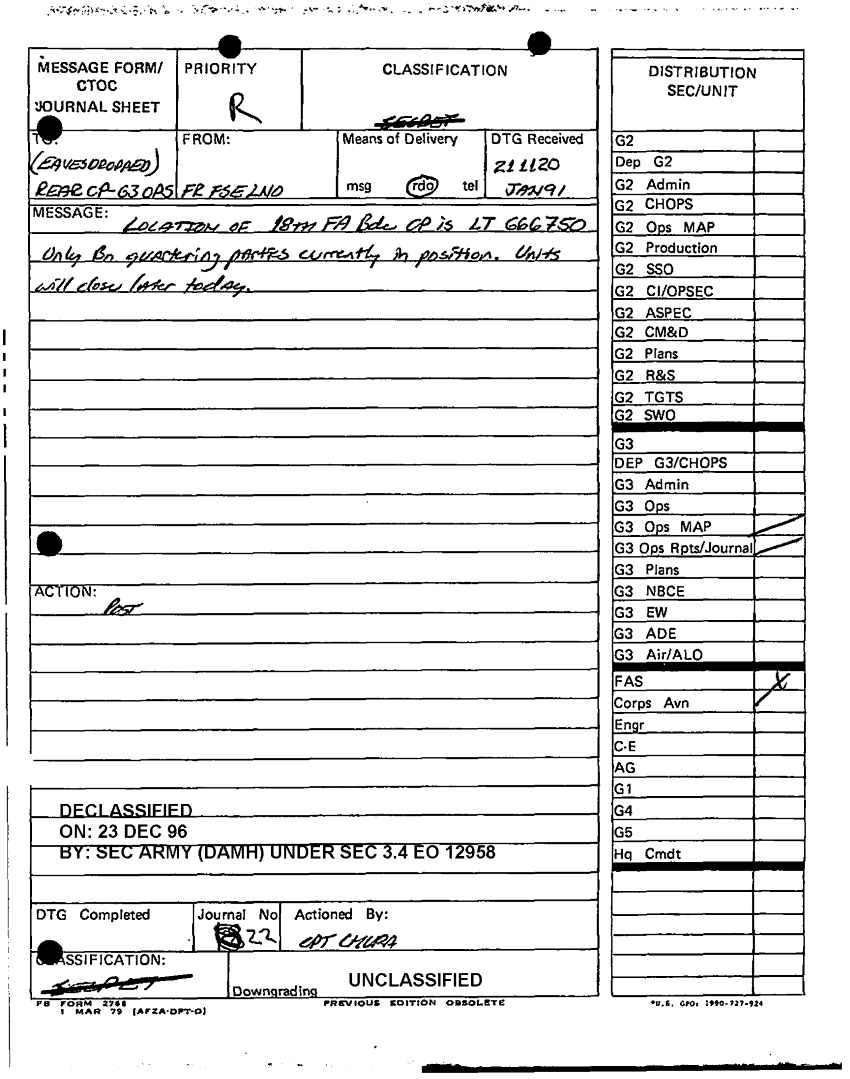 MESSAGE FORM/
CTOC
JOURNAL SHEET
PRIORITY
R
CLASSIFICATION
SECRET
TO:
(EAVESDROPPED)
REAR CP-G3 OPS
FROM:
FR FSE LNO
Means of Delivery
msg rdo tel
DTG Received
211120
JAN91
MESSAGE: LOCATION OF 18TH FA Bde CP is LT 666750
Only Bn quartering parties currently in position. Units
will close later today.
ACTION:
POST
DECLASSIFIED
ON: 23 DEC 96
BY: SEC ARMY (DAMH) UNDER SEC 3.4 EO 12958
DTG Completed
Journal No
22
Actioned By:
CPT
CLASSIFICATION:
SECRET
Downgrading
UNCLASSIFIED
FB FORM 2768
1 MAR 79 (AFZA-DPT-O)
PREVIOUS EDITION OBSOLETE
DISTRIBUTION
SEC/UNIT
G2
Dep G2
G2 Admin
G2 CHOPS
G2 Ops MAP
G2 Production
G2 SSO
G2 CI/OPSEC
G2 ASPEC
G2 CM&D
G2 Plans
G2 R&S
G2 TGTS
G2 SWO
G3
DEP G3/CHOPS
G3 Admin
G3 Ops
G3 Ops MAP
G3 Ops Rpts/Journal
G3 Plans
G3 NBCE
G3 EW
G3 ADE
G3 Air/ALO
FAS
Corps Avn
Engr
C-E
AG
G1
G4
G5
Hq Cmdt
*U.S. GPO: 1990-727-924